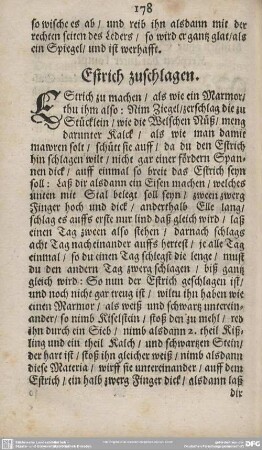 178
so wische es ab / und reib ihn alsdann mit der
rechten seiten des Leders / so wird er gantz glat / als
ein Spiegel / und ist werhafft.
Estrich zuschlagen.
EStrich zu machen / als wie ein Marmor /
thu ihm also: Nim Ziegel / zerschlag die zu
Stücklein / wie die Welschen Nüß / meng
darunter Kalck / als wie man damit
mawren solt / schüts sie auff / da du den Estrich
hin schlagen wilt / nicht gar einer fördern Span-
nen dick / auff einmal so breit das Estrich seyn
soll: Laß dir alsdann ein Eisen machen / welches
unten mit Stal belegt soll seyn / zween zwerg
Finger hoch und dick / anderthalb Elle lang /
schlag es auffs erste nur lind daß gleich wird / laß
einen Tag zween also stehen / darnach schlags
acht Tag nach einander auffs hertest / je alle Tag
einmal / so du einen Tag schlegst die lenge / must
du den andern Tag zwerg schlagen / biß gantz
gleich wird: So nun der Estrich geschlagen ist /
und noch nicht gar treug ist / wiltu ihn haben wie
einen Marmor / als weiß und schwartz unterein-
ander / so nimb Kiselstein / stoß den zu mehl / red
ihn durch ein Sieb / nimb alsdann 2. theil Kiß-
ling und ein theil Kalch / und schwartzen Stein /
der hart ist / stoß ihn gleicher weiß / nimb alsdann
diese Materia / wirff sie untereinander / auff dem
Estrich / ein halb zwerg Finger dick / alsdann laß
dir